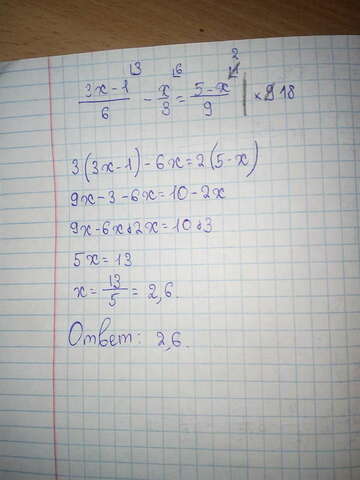 (3x-1)/6 ⌊3 - x/3 ⌊6 = (5-x)/9 ⌊2 | × 18
3(3x-1)-6x=2(5-x)
9x-3-6x=10-2x
9x-6x+2x=10+3
5x=13
x=13/5=2,6.
Ответ: 2,6.